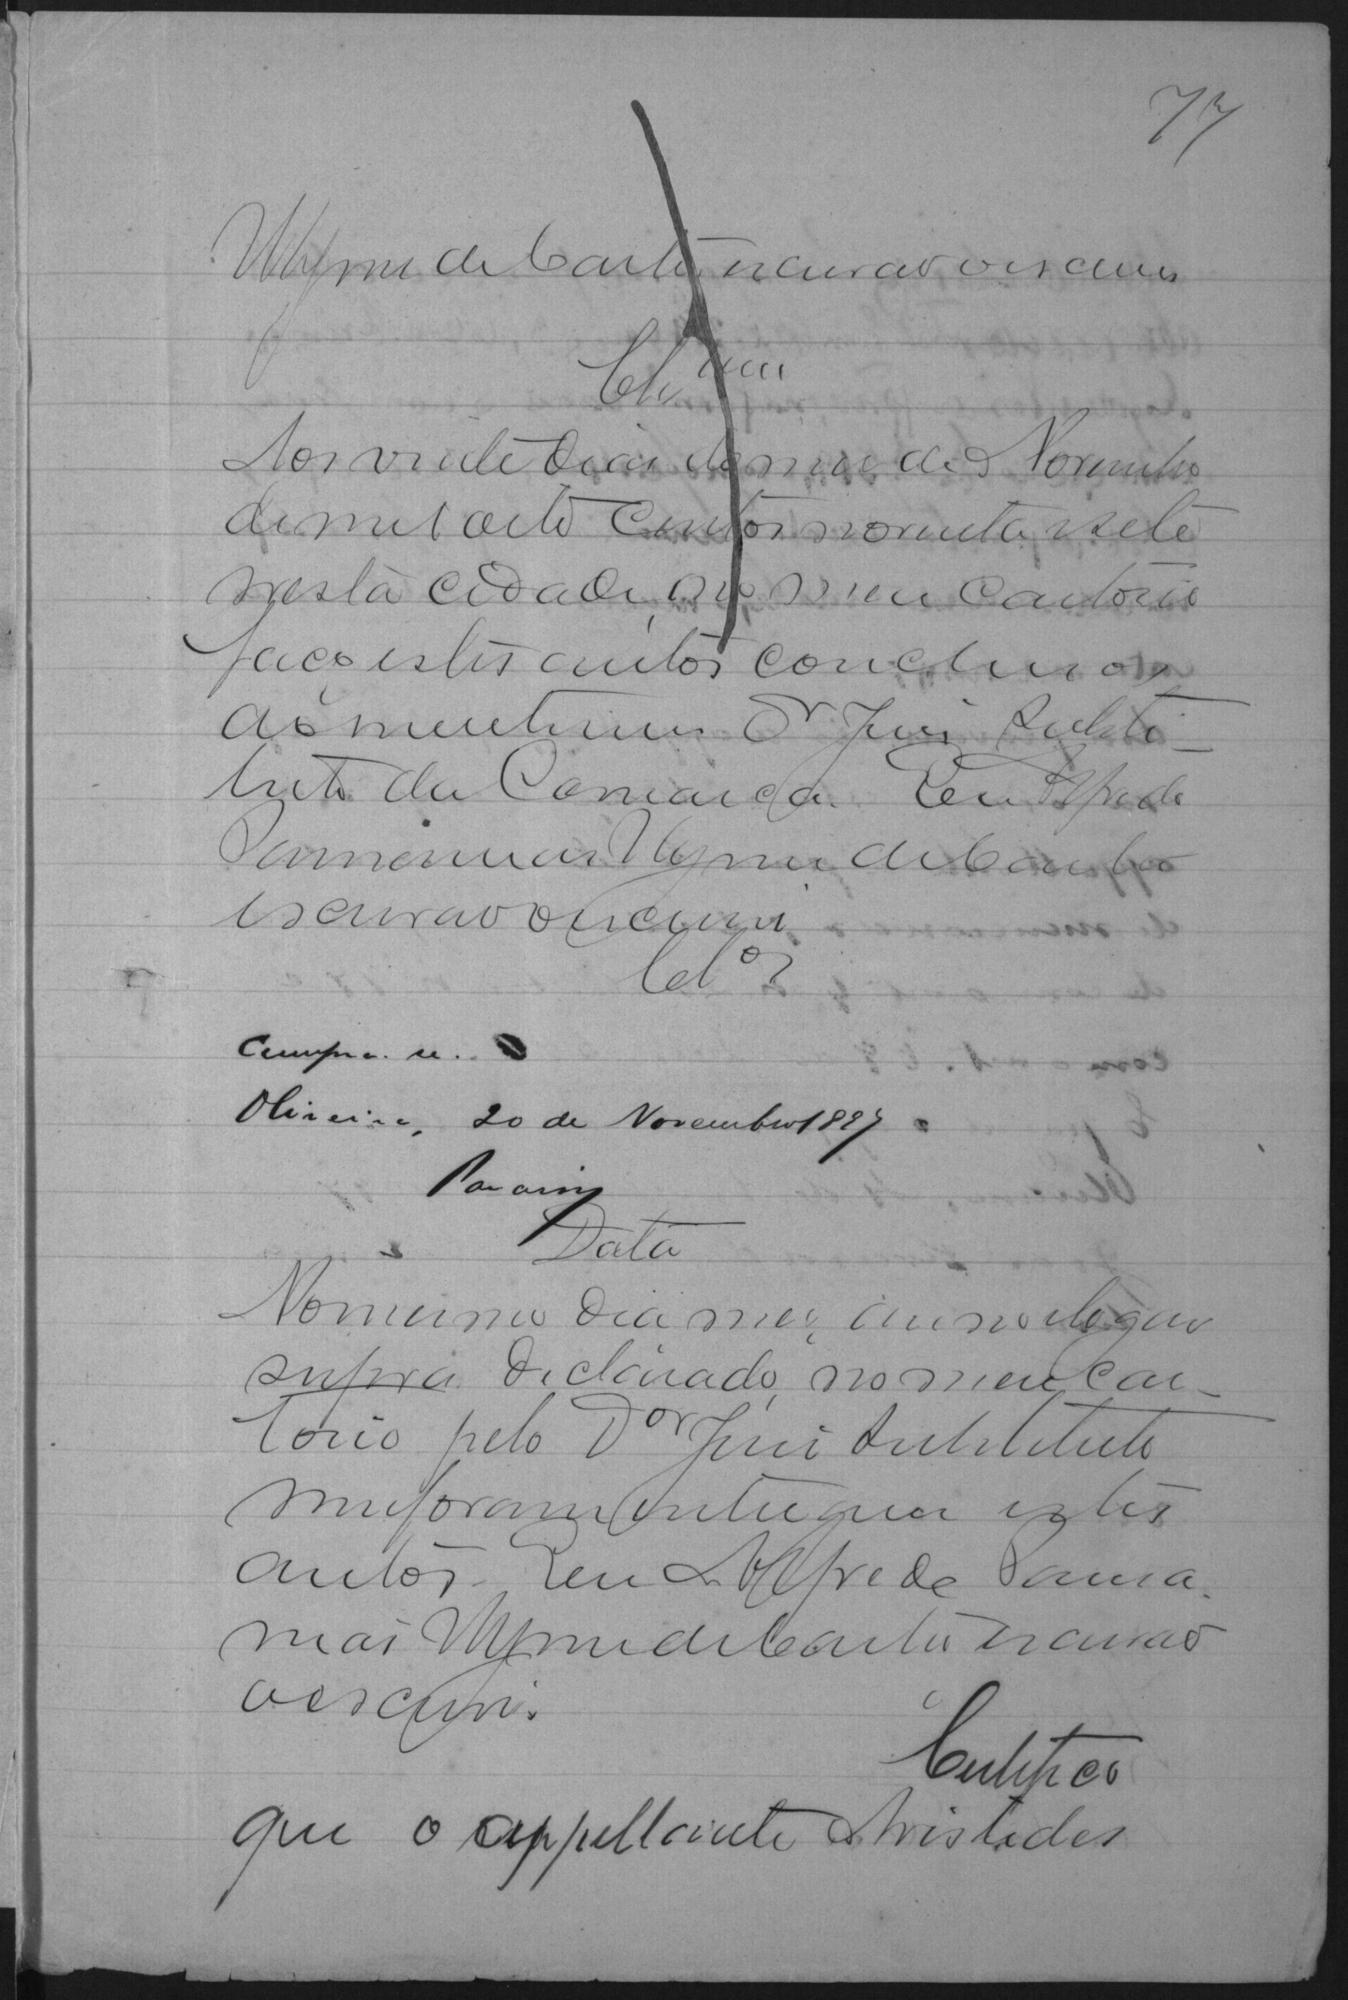 77
de Castro escrivão o escrevi
Clu
Aos vinte dias do mez de Novembro
de mil oito centos noventa e sete
nesta cidade, no meu cartorio
faço estes autos conclusos
ao meretissimo Dr Juiz Substi-
tuto da Comarca. Eu Alfredo
de Castro
escrivão o escrevi
Clos
Cumpra-se.
Oliveira, 20 de Novembro 1897
Data
No mesmo dia mez, anno e logar
supra declarado, no meu car-
torio pelo Dor Juiz Substituto
me foram entregues estes
autos. Eu Alfredo
de Castro escrivão
o escrevi.
Certifico
que o appellante Aristides